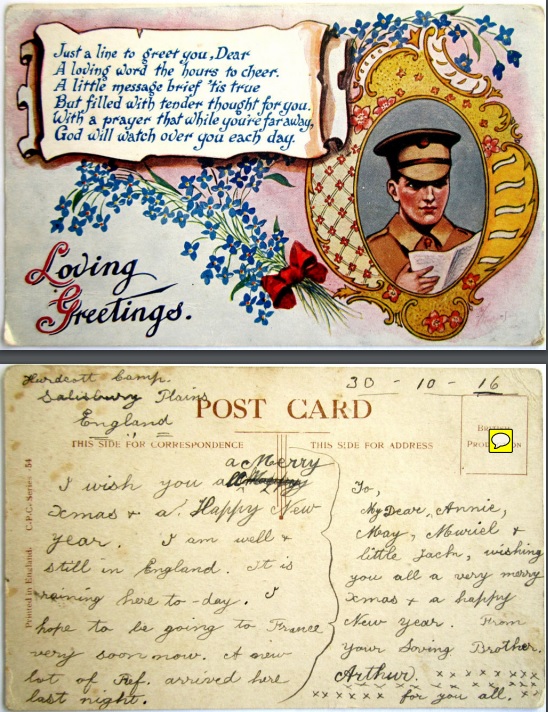 Just a line to greet you, Dear
A loving word the hours to cheer.
A little message brief 'tis true
But filled with tender thought for you.
With a prayer that while you're far away,
God will watch over you each day.
Loving
Greetings.
Hurdcott Camp.
Salisbury Plains
England
30 - 10 - 16
POST CARD
THIS SIDE FOR CORRESPONDENCE
THIS SIDE FOR ADDRESS
Printed in England. C.P.C. Series 54
a Merry
I wish you a
Xmas & a Happy New
year. I am well &
still in England. It is
raining here to-day. I
hope to be going to France
very soon now. A new
lot of Ref. arrived here
last night.
To,
My Dear Annie,
May, Muriel &
little Jack, wishing
you all a very merry
Xmas & a happy
New Year. From
your Loving Brother.
Arthur. x x x x x x x x
x x x x x x for you all. x x